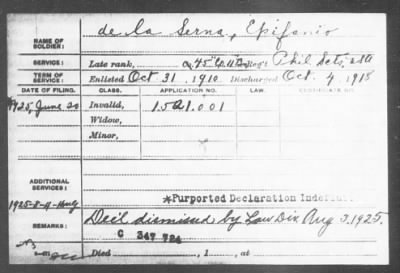 NAME OF SOLDIER: de la Serna, Epifanio
SERVICE: Late rank, Co. 45" Co. Reg't Phil Scts, USA
TERM OF SERVICE: Enlisted Oct 31, 1910 Discharged Oct. 4, 1918
DATE OF FILING. CLASS. APPLICATION NO. LAW. CERTIFICATE NO.
1925 June 20 Invalid, 1521001
Widow,
Minor,
ADDITIONAL SERVICES:
*Purported Declaration
REMARKS: Decl. dismissed by Law Div. Aug 3, 1925.
C 347 724
Died , 1 , at